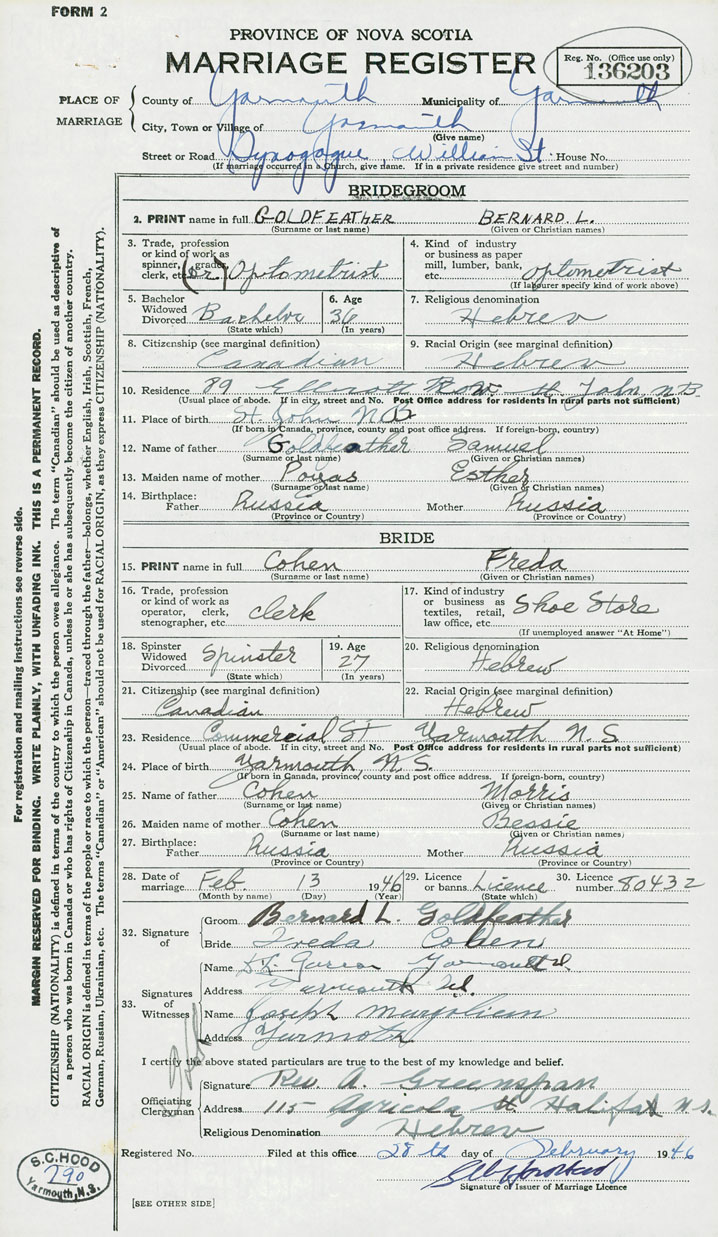 FORM 2
PROVINCE OF NOVA SCOTIA
MARRIAGE REGISTER
Reg. No. (Office use only)
136203
PLACE OF MARRIAGE
County of Yarmouth Municipality of Yarmouth
City, Town or Village of Yarmouth
(Give name)
Street or Road Synagogue, William St House No.
(If marriage occurred in a Church, give name. If in a private residence give street and number)
BRIDEGROOM
2. PRINT name in full GOLDFEATHER BERNARD L.
(Surname or last name) (Given or Christian names)
3. Trade, profession or kind of work as spinner, grader, clerk, etc. (Dr.) Optometrist
4. Kind of industry or business as paper mill, lumber, bank, etc. optometrist
(If labourer specify kind of work above)
5. Bachelor Widowed Divorced Bachelor
(State which)
6. Age 36
(In years)
7. Religious denomination Hebrew
8. Citizenship (see marginal definition) Canadian
9. Racial Origin Hebrew
10. Residence 89 Elliott Row St John N.B.
(Usual place of abode. If in city, street and No. Post Office address for residents in rural parts not sufficient)
11. Place of birth St. John N B
(If born in Canada, province, county and post office address. If foreign-born, country)
12. Name of father Goldfeather Samuel
(Surname or last name) (Given or Christian names)
13. Maiden name of mother Poyas Esther
(Surname or last name) (Given or Christian names)
14. Birthplace: Father Russia Mother Russia
(Province or Country) (Province or Country)
BRIDE
15. PRINT name in full Cohen Freda
(Surname or last name) (Given or Christian names)
16. Trade, profession or kind of work as operator, clerk, stenographer, etc. clerk
17. Kind of industry or business as textiles, retail, law office, etc. Shoe Store
(If unemployed answer "At Home")
18. Spinster Widowed Divorced Spinster
(State which)
19. Age 27
(In years)
20. Religious denomination Hebrew
21. Citizenship (see marginal definition) Canadian
22. Racial Origin (see marginal definition) Hebrew
23. Residence Commercial St Yarmouth N. S.
(Usual place of abode. If in city, street and No. Post Office address for residents in rural parts not sufficient)
24. Place of birth Yarmouth, N. S.
(If born in Canada, province, county and post office address. If foreign-born, country)
25. Name of father Cohen Morris
(Surname or last name) (Given or Christian names)
26. Maiden name of mother Cohen Bessie
(Surname or last name) (Given or Christian names)
27. Birthplace: Father Russia Mother Russia
(Province or Country) (Province or Country)
28. Date of marriage Feb. 13 1946
(Month by name) (Day) (Year)
29. Licence or banns. Licence
(State which)
30. Licence number 80432
32. Signature of
Groom Bernard L. Goldfeather
Bride Freda Cohen
33. Signatures of Witnesses
Name Yarmouth
Address Yarmouth
Name Joseph Margolian
Address Yarmoth
I certify the above stated particulars are true to the best of my knowledge and belief.
Officiating Clergyman
Signature Rev A. Greenspan
Address 115 Agricola St. Halifax N.S.
Religious Denomination Hebrew
Registered No. Filed at this office 28th day of February 1946
Signature of Issuer of Marriage Licence
[SEE OTHER SIDE]
For registration and mailing instructions see reverse side.
MARGIN RESERVED FOR BINDING. WRITE PLAINLY, WITH UNFADING INK. THIS IS A PERMANENT RECORD.
CITIZENSHIP (NATIONALITY) is defined in terms of the country to which the person owes allegiance. The term "Canadian" should be used as descriptive of
a person who was born in Canada or who has rights of Citizenship in Canada, unless he or she has subsequently become the citizen of another country.
RACIAL ORIGIN is defined in terms of the people or race to which the person—traced through the father—belongs, whether English, Irish, Scottish, French,
German, Russian, Ukrainian, etc. The terms "Canadian" or "American" should not be used for RACIAL ORIGIN, as they express CITIZENSHIP (NATIONALITY).
S.C. HOOD
290
Yarmouth, N.S.